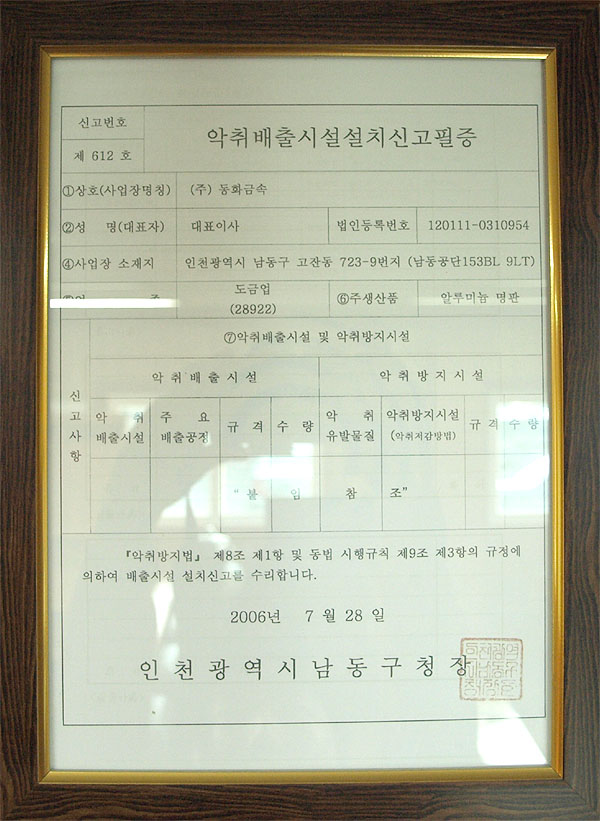 신고번호
제 612 호
악취배출시설설치신고필증
①상호(사업장명칭) (주) 동화금속
②성 명(대표자) 대표이사 법인등록번호 120111-0310954
④사업장 소재지 인천광역시 남동구 고잔동 723-9번지 (남동공단153BL 9LT)
도금업
(28922)
⑥주생산품 알루미늄 명판
신고사항
⑦악취배출시설 및 악취방지시설
악 취 배 출 시 설 악 취 방 지 시 설
악 취
배출시설
주 요
배출공정
규 격 수 량
악 취
유발물질
악취방지시설
(악취저감방법)
규 격 수 량
“ 붙 임 참 조”
『악취방지법』 제8조 제1항 및 동법 시행규칙 제9조 제3항의 규정에
의하여 배출시설 설치신고를 수리합니다.
2006년 7 월 28 일
인 천 광 역 시 남 동 구 청 장